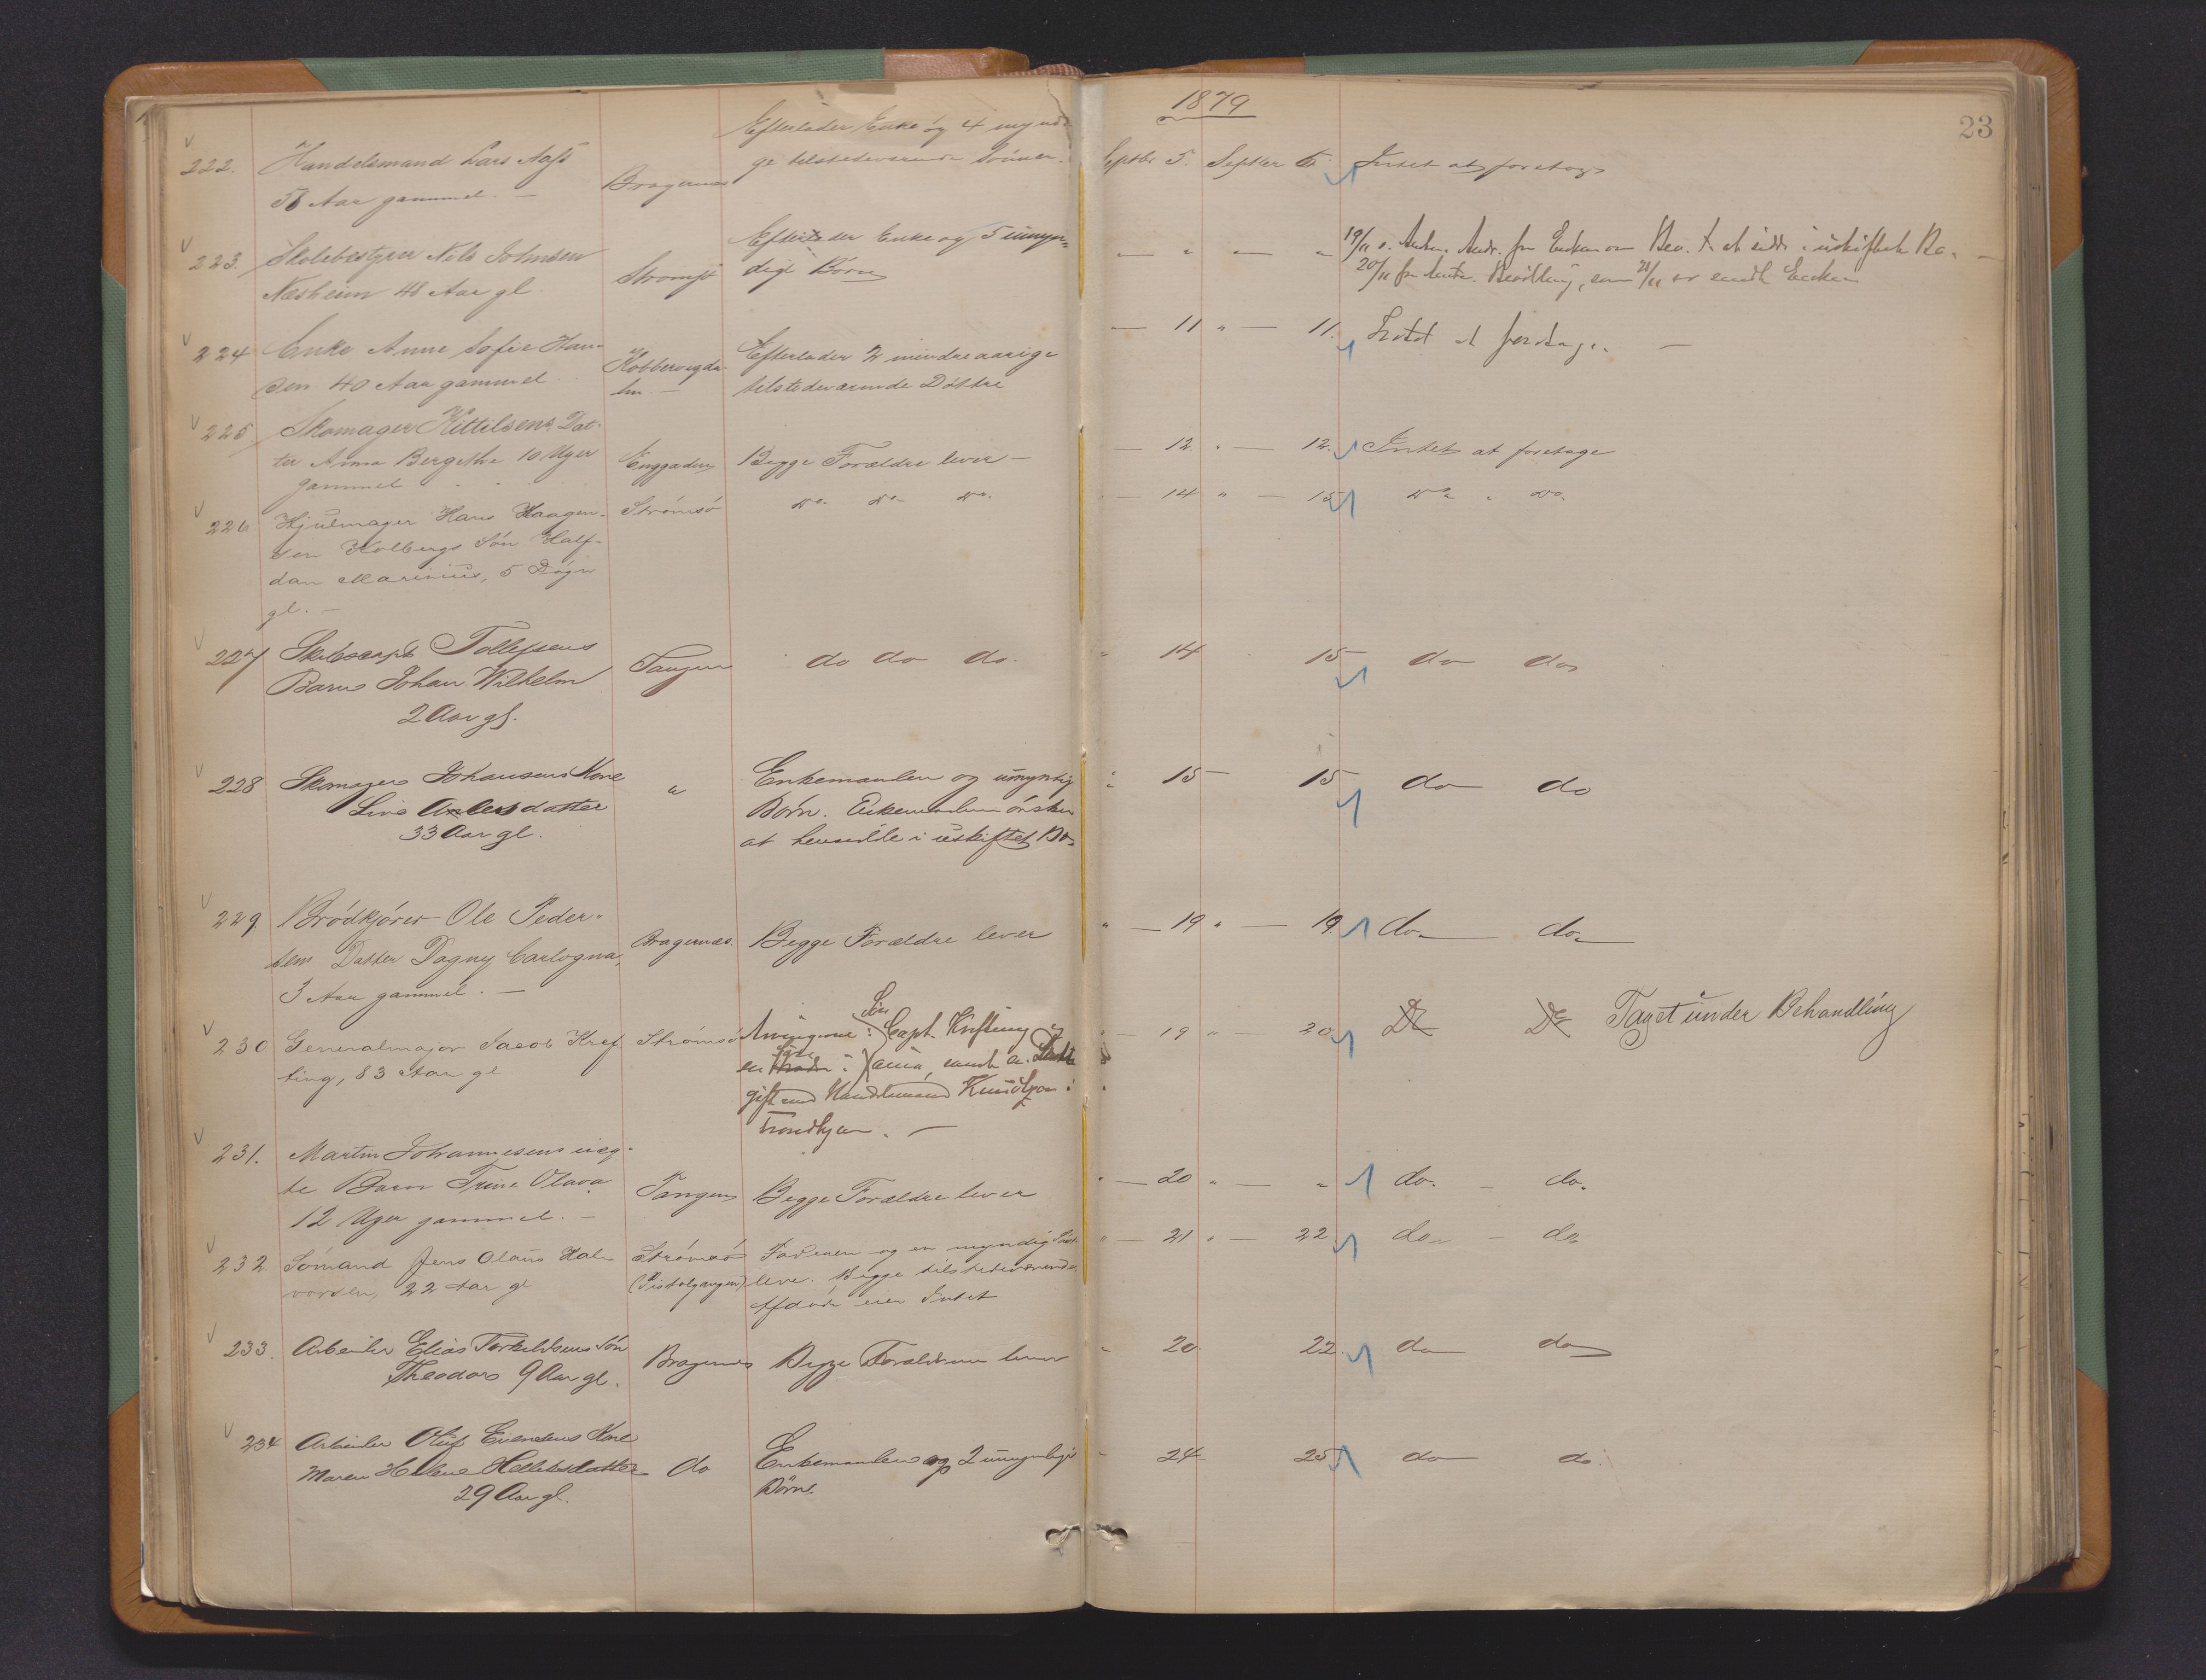 1879
23
Efterlader Enke og 4 myndi
222. Handelsmand Lars Aass
ge tilstedeværende Sønner.
Septbr 5. Septbr 6. Intet at foretage
56 Aar gammel. —
Bragernæs
223. Skolebestyrer Nils Johnsen
Næsheim 48 Aar gl.
Strømsø
Efterlader Enke og 5 umyn-
dige Børn
— " — " 19/11 fra Enken om Bev. t. at sidde i uskiftet Bo. —
20/11 fra Bevilling, som 21/11 er sendt Enken
224 Enke Anne Sofie Han-
sen 40 Aar gammel
Kobbervigda-
len. —
Efterlader 2 mindreaarige
tilstedeværende Døttre
— 11 " — 11. Intet at foretage. —
225. Skomager Kittilsens Dat-
ter Anna Bergithe 10 Uger
gammel
Enggaden
Begge Forældre lever —
— 12 " — 12. Intet at foretage
226 Hjulmager Hans Haagen-
sen Kolbergs Søn Half-
dan Marinius, 5 Døgn
gl. —
Strømsø
Do. Do. Do.
— 14 " — 15 Do " Do.
227 Skibscapt Tollefsens
Barn Johan Wilhelm
2 Aar gl.
Tangen
do do do.
" 14 15 do do
228 Skomager Johansens Kone
Line Andersdatter
33 Aar gl.
"
Enkemanden og umyndig
Børn. Enkemanden ønsker
at hensidde i uskiftet Bo
" 15 15 do do
229. Brødkjører Ole Peder-
sens Datter Dagny Carlogna,
3 Aar gammel. —
Bragernæs.
Begge Forældre lever
" — 19 " — 19 do. do.
230 Generalmajor Jacob Kref
ting, 83 Aar gl
Strømsø
Arvingerne: Søn Capt. Krefting
en samt en Datter
gift med Handelsmand Knudtzon i
Trondhjem. —
" — 19 " — 20 Do Do Taget under Behandling
231. Martin Johannesens uæg-
te Barn Trine Olava
12 Uger gammel. —
Tangen
Begge Forældre lever
" — 20 " — " do. — do.
232 Sømand Jens Olaus Hal-
vorsen, 22 Aar gl
Strømsø
(Pistolgangen)
Faderen og en myndig
leve. Begge tilstedeværende.
Afdøde eier Intet
" — 21 " — 22 do — do
233. Arbeider Elias Torkildsens Søn
Theodor 9 Aar gl.
Bragernes
Begge Forældrene lever
" 20 22. do do
234 Arbeider Oluf Evensens Kone
Maren Helene Hellebosdatter
29 Aar gl.
do
Enkemanden og 2 umyndige
Børn.
" 24 25 do do.